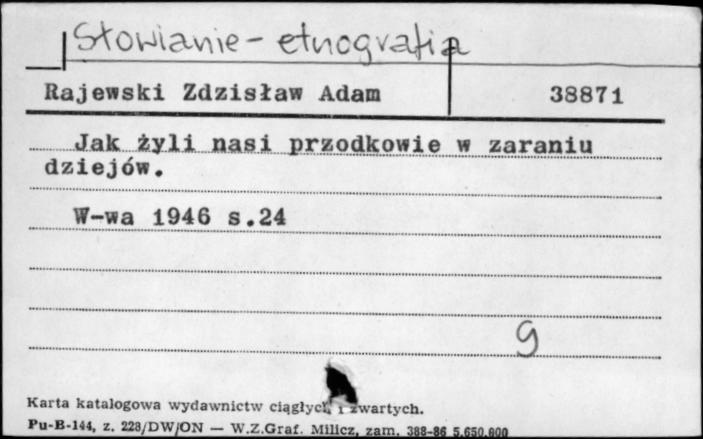 Słowianie - etnografia
Rajewski Zdzisław Adam 38871
Jak żyli nasi przodkowie w zaraniu
dziejów.
W-wa 1946 s.24
g
Karta katalogowa wydawnictw ciągłych i zwartych.
Pu-B-144, z. 228/DW/ON — W.Z.Graf. Milicz, zam. 388-86 5.650.000